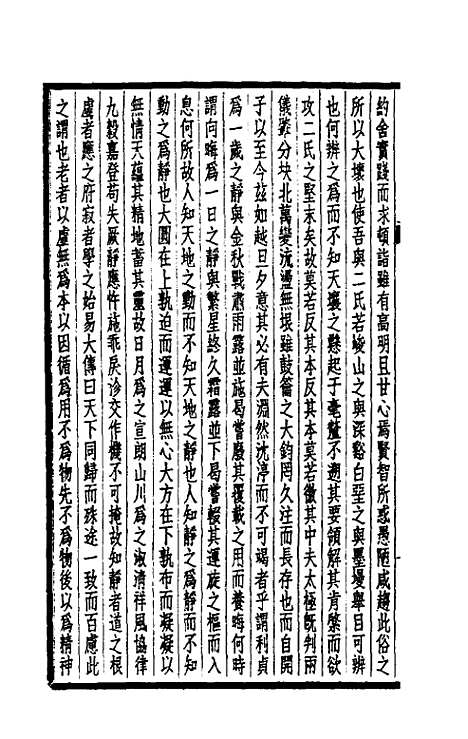 約舍實踐而求頓詣雖有高明且甘心焉賢智所惑愚陋咸趨此俗之
所以大壞也使吾與二氏若峻山之與深谿白堊之與墨墁舉目可辨
也何辨之為而不知天壤之懸起于毫釐不遡其要領解其肯綮而欲
攻二氏之堅末矣故莫若反其本反其本莫若徵其中夫太極既判兩
儀肇分坱北萬變流盪無垠雖鼓籥之大鈞罔久注而長存也而自開
子以至今茲如越旦夕意其必有夫淵然沈渟而不可竭者乎謂利貞
為一歲之靜與金秋戰肅雨露並施曷嘗廢其覆載之用而養晦何時
謂向晦為一日之靜與繁星終久霜露並下曷嘗輟其運旋之樞而入
息何所故人知天地之動而不知天地之所以動知靜之為靜而不知
動之為靜也大圓在上孰迫而運運以無心大方在下孰布而凝凝以
無情天蘊其精地蓄其靈故日月為之宣朗山川為之淑清祥風協律
九穀嘉登苟失厥靜應忤施乖戾沴交作機不可掩故知靜者道之根
虛者應之府寂者學之始易大傳曰天下同歸而殊途一致而百慮此
之謂也老者以虛無為本以因循為用不為物先不為物後以為精神